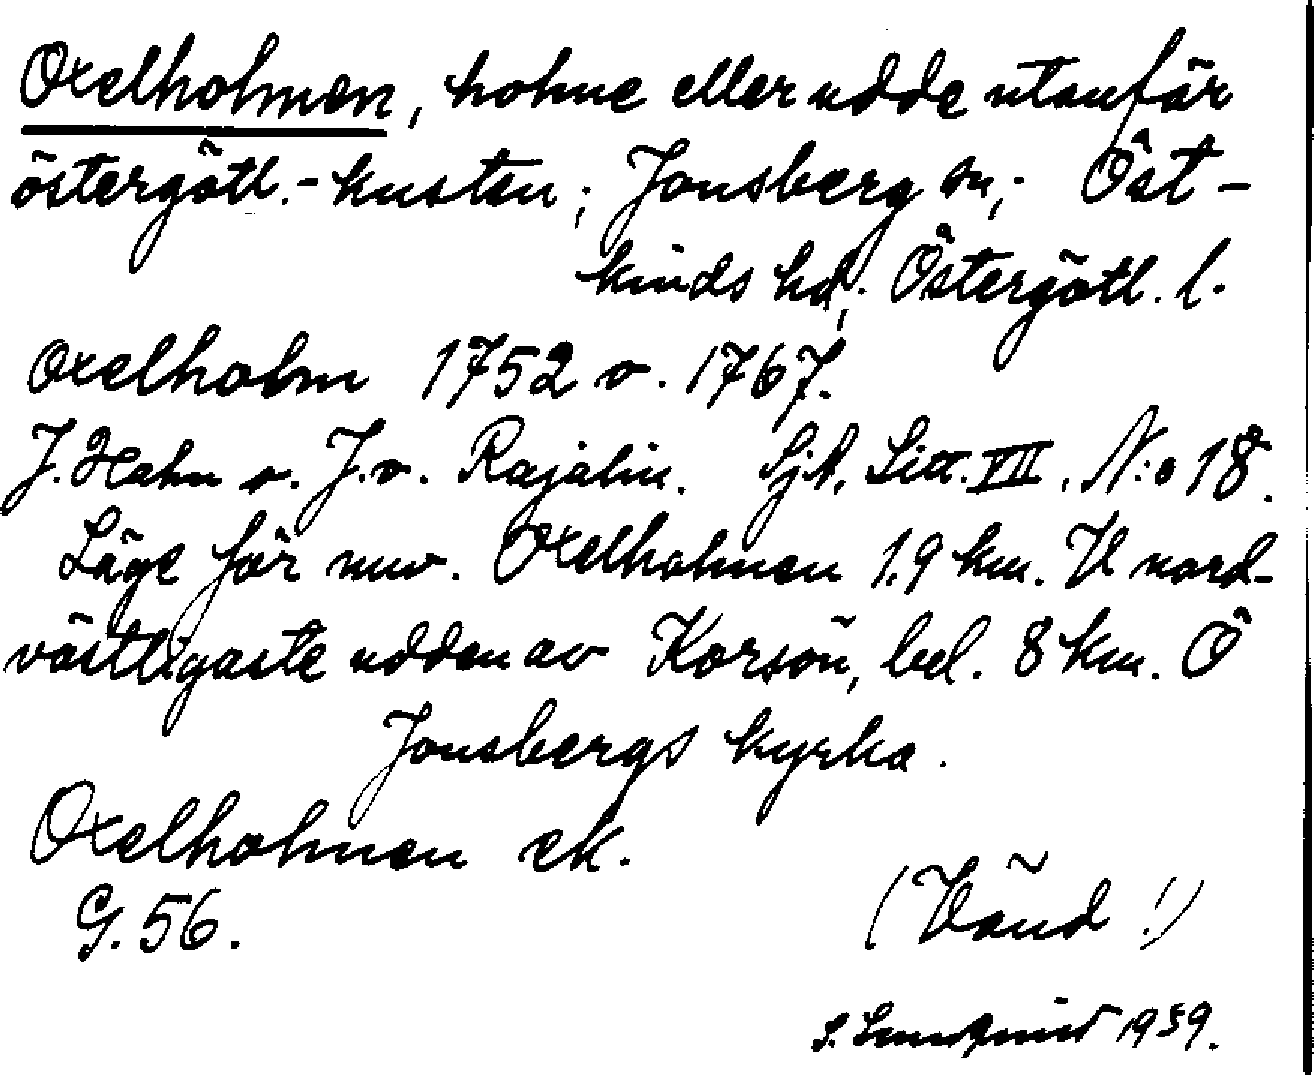 Oxelholmen, holme eller udde utanför
östergötl.-kusten; Jonsberg sn; Öst-
kinds hd; Östergötl. l.
Oxelholm 1752 o. 1767.
J. Hahn o. J. v. Rajalin. Sjk. Litt. VII. N:o 18.
Läge för nuv. Oxelholmen 1.9 km. V nord-
västligaste udden av Korsön, bel. 8 km. Ö
Jonsbergs kyrka.
Oxelholmen ek.
G. 56.
(Vänd!)
S. Lundqvist 1959.